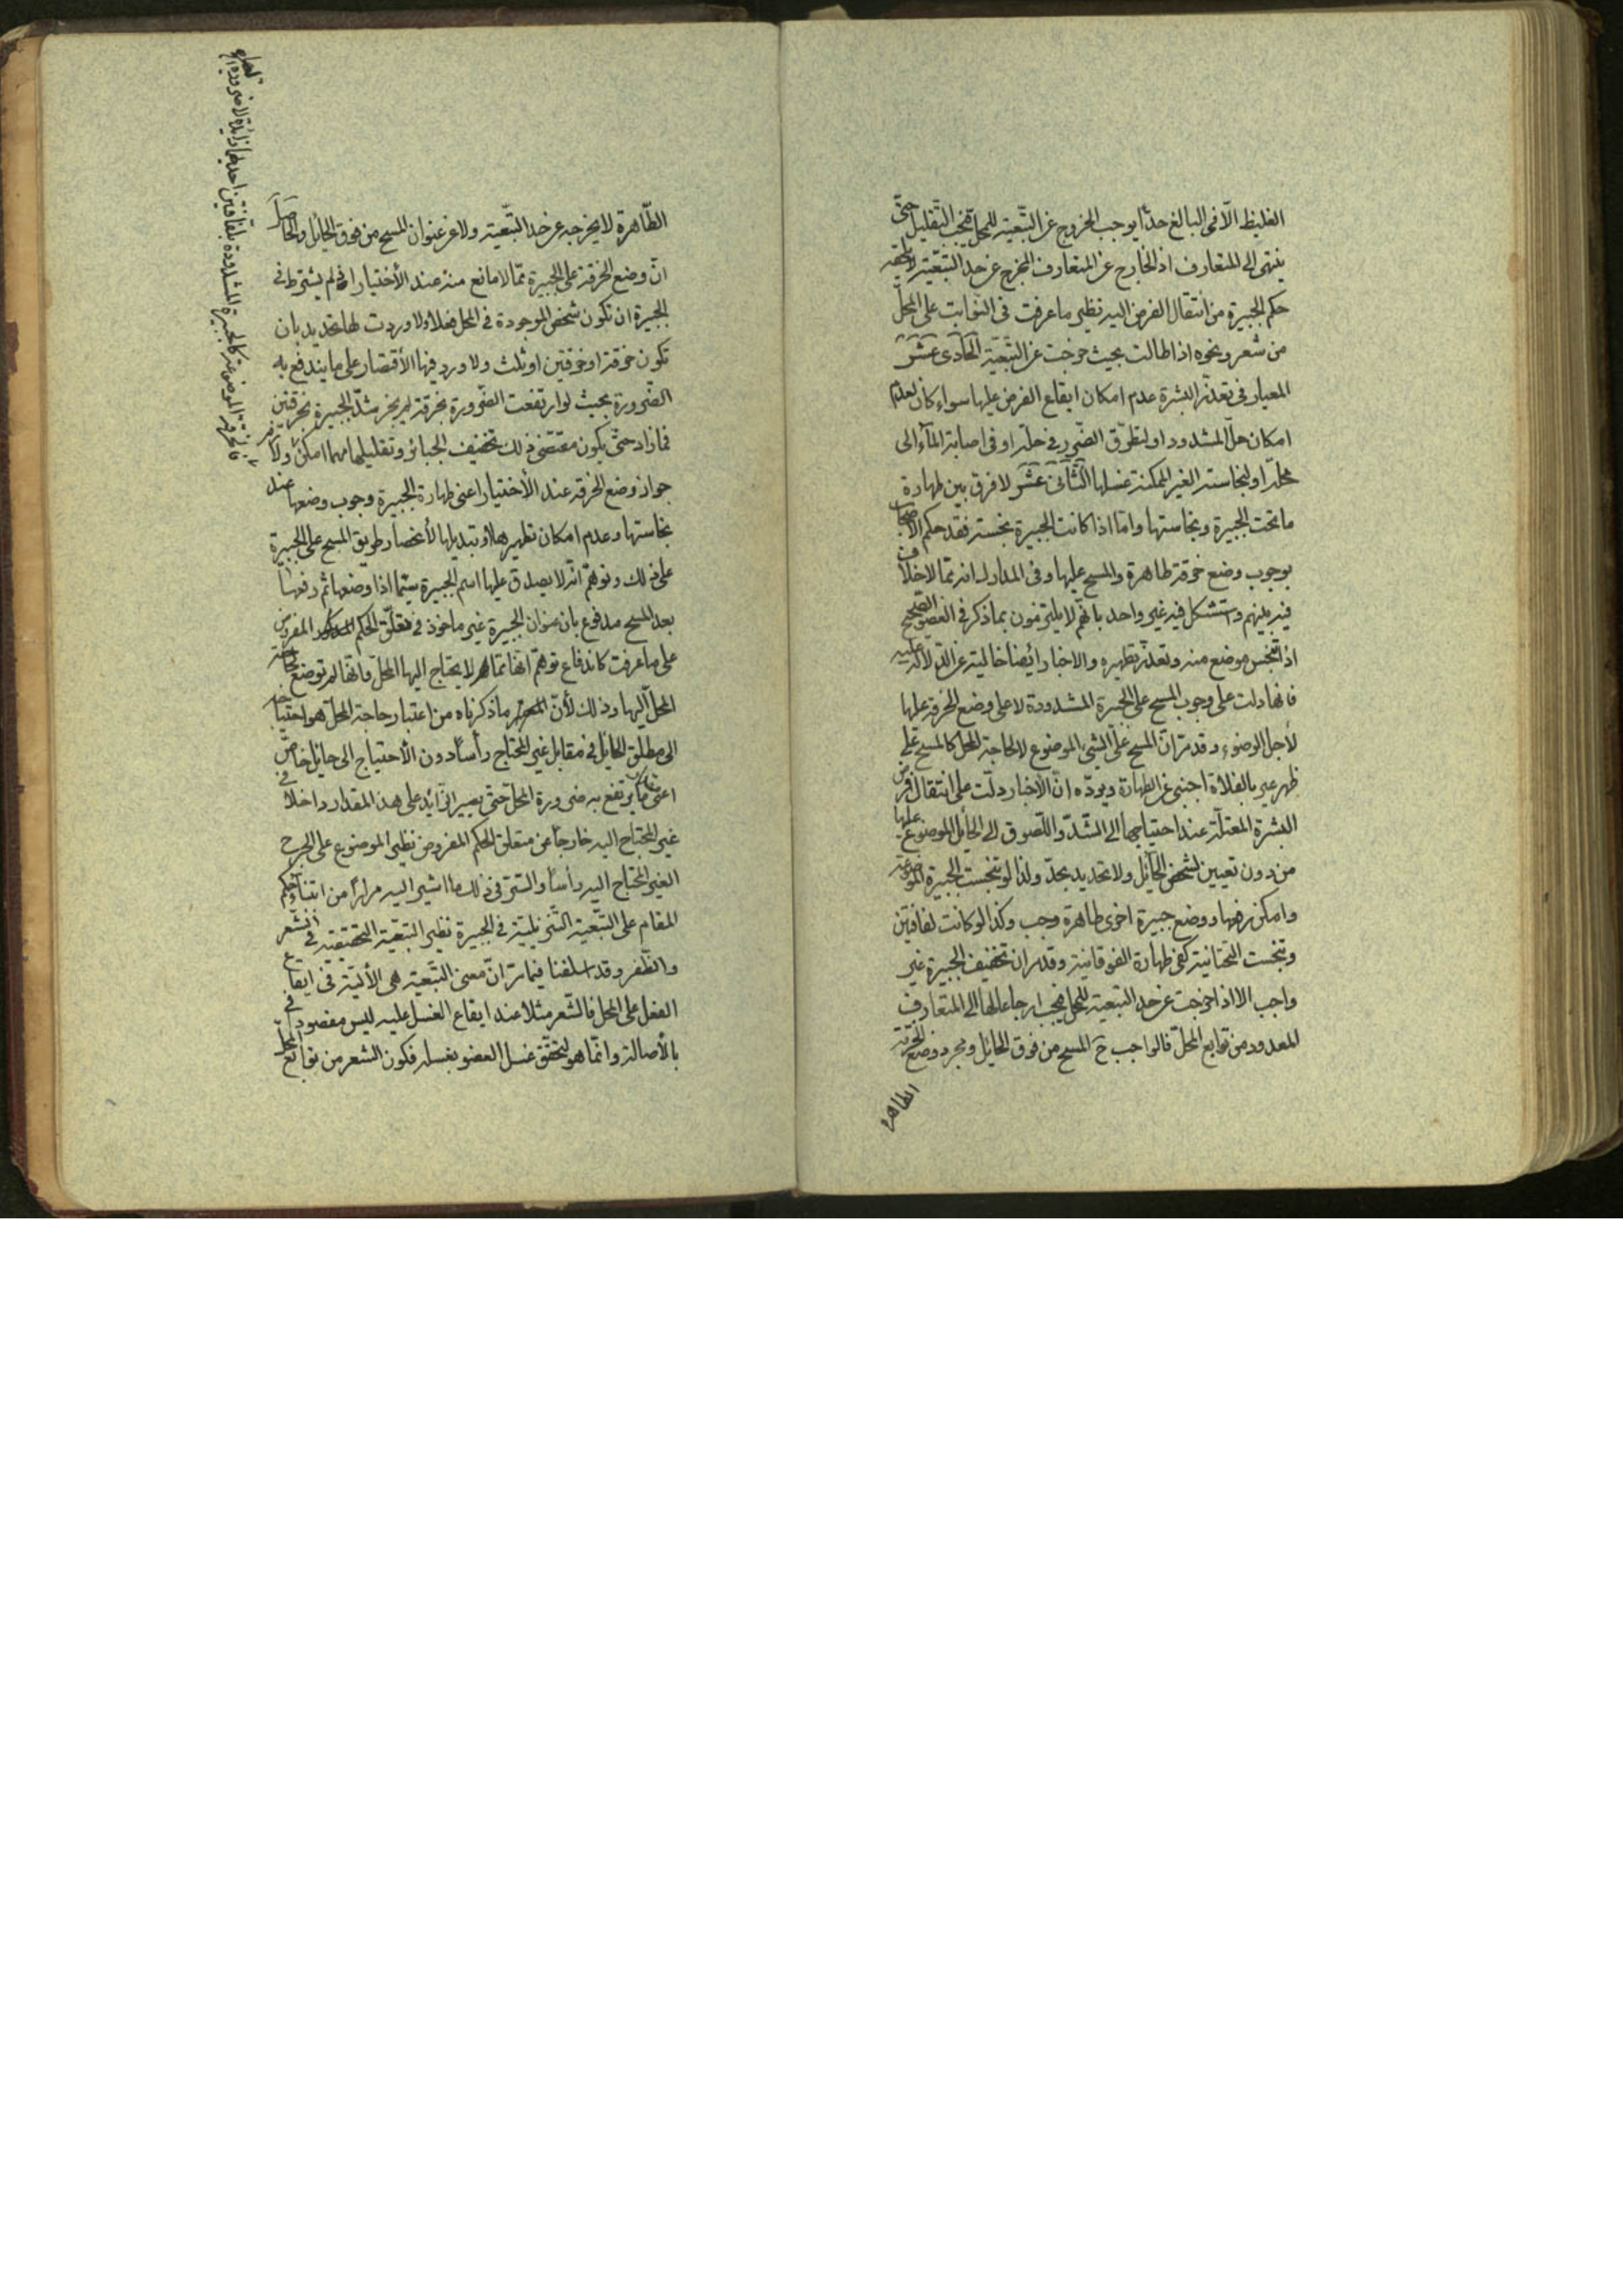 الغليظ الّا فى البالغ حدّا يوجب الخروج عن التّبعية للمحلّ فيجب التّقليل حتّى
ينتهى الى المتعارف اذ الخارج عن المتعارف المخرج عن حدّ التّبعيّة لا يلحقه
حكم الجبيرة من انتقال الفرض اليه نظير ما عرفت فى النّوابت على المحلّ
من شعر ونحوه اذا طالت بحيث خرجت عن التّبعيّة الحادى عشر
المعيار فى تعذّر البشرة عدم امكان ايقاع الفرض عليها سواء كان لعدم
امكان حلّ المشدود او لتطرّق الضّرر فى حلّه او فى اصابة المآء الى
محلّه او لنجاسته الغير الممكنة غسلها الثّانى عشر لا فرق بين طهارة
ما تحت الجبيرة ونجاستها وامّا اذا كانت الجبيرة نجسة فقد حكم الأصحاب
بوجوب وضع خرقة طاهرة والمسح عليها وفى المدارك انه ممّا لا خلاف
فيه بينهم واستشكل فيه غير واحد بانّهم لا يلتزمون بما ذكر فى العضو الصّحيح
اذا تنجّس موضع منه وتعذّر تطهيره والاخبار أيضا خالية عن الدّلالة عليه
فانها دلت على وجوب المسح على الجبيرة المشدودة لا على وضع الخرقة عليها
لأجل الوضوء وقد مرّ انّ المسح على الشىء الموضوع لا لحاجة المحل كالمسح على
ظهر عير بالفلاة اجنبى عن الطهارة ويردّه انّ الأخبار دلّت على انتقال فرض
البشرة المعتلّة عند احتياجها الى الشّدّ واللّصوق الى الحايل الموضوع عليها
من دون تعيين لشخص الحآئل ولا تحديد بحدّ ولذا لو تنجّست الجبيرة الموضوعة
وامكن نزعها ووضع جبيرة اخرى طاهرة وجب وكذا لو كانت لفافتين
وتنجست التحتانية كفى طهارة الفوقانية وقد مرّ ان تخفيف الجبيرة غير
واجب الا اذا خرجت عن حد التبعية للمحل فيجب ارجاعها الى المتعارف
المعدود من توابع المحلّ فالواجب ح المسح من فوق الحايل ومجرد وضع الخرقة
الطاهرة
الطّاهرة لا يخرجه عن حد التّبعيّة ولا عن عنوان المسح من فوق الحايل والحاصل
انّ وضع الخرقة على الجبيرة ممّا لا مانع منه عند الأختيار اذ لم يشترط فى
الجبيرة ان تكون شخص الموجودة فى المحل فعلا ولا وردت لها تحديد بان
تكون خرقة او خرقتين او ثلث ولا ورد فيها الأقتصار على ما يندفع به
الضّرورة بحيث لو ارتفعت الضّرورة بخرقة لم يجز شدّ الجبيرة بخرقتين
فما زاد حتّى يكون مقتضى ذلك تخفيف الجبائر وتقليلها مهما امكن ولازم
جواز وضع الخرقة عند الأختيار اعنى طهارة الجبيرة وجوب وضعها عند
نجاستها وعدم امكان تطهيرها او تبديلها لأنحصار طريق المسح على الجبيرة
على ذلك وتوهّم انّه لا يصدق عليها اسم الجبيرة سيّما اذا وضعها ثم رفعها
بعد المسح مدفوع بان عنوان الجبيرة غير ماخوذ فى متعلّق الحكم المفروض
على ما عرفت كاندفاع توهّم انّها ممّا لا يحتاج اليها المحلّ فانّها لم توضع لحاجة
المحلّ اليها وذلك لأنّ ما ذكرناه من اعتبار حاجة المحلّ هو احتياجه
الى مطلق الحايل فى مقابل غير المحتاج رأسا دون الأحتياج الى حايل خاصّ
اعنى ما يرتفع به ضرورة المحلّ حتّى يصير الزّايد على هذا المقدار داخلا فى
غير المحتاج اليه خارجا عن متعلق الحكم المفروض نظير الموضوع على الجرح
الغير المحتاج اليه رأسا والسّرّ فى ذلك ما اشير اليه مرارا من ابتناء حكم
المقام على التّبعيّة التّنزيليّة فى الجبيرة نظير التبعيّة الحقيقية فى الشّعر
والظّفر وقد اسلفنا فيما مرّ انّ معنى التّبعيّة هى الأليّة فى ايقاع
الفعل على المحل فالشّعر مثلا عند ايقاع الغسل عليه ليس مقصود فى
بالأصالة وانّما هو لتحقّق غسل العضو بغسله فكون الشعر من توابع المحلّ
فالخرقة الموضوعة كالجبيرة المشدودة بلفافتين احديهما زائدة لا ضرورة